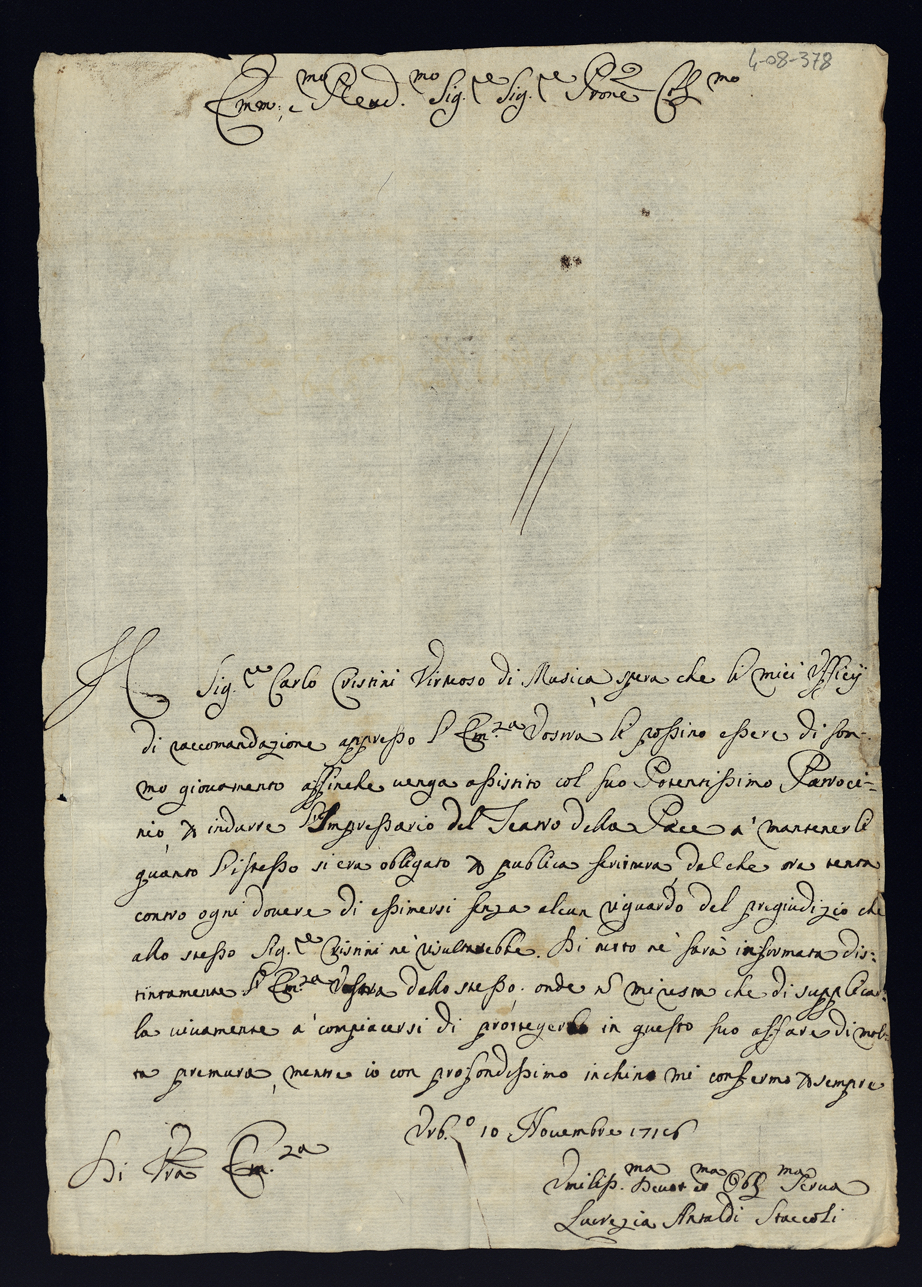 4-08-378
Emm.mo e Reud.mo Sig.re Sig.re Prone Col.mo
Il Sig.re Carlo Cristini Virtuoso di Musica spera che li miei Ufficij
di raccomandazione appresso l'Em.za Vostra li possino essere di som-
mo giouamento affinche uenga assistito col suo Potentissimo Patroci=
nio, p indurre l'Impressario del Teatro della Pace a' mantenerli
quanto l'istesso si era obligato p publica scrittura, dal che ora tenta
contro ogni douere di essimersi senza alcun riguardo del pregiudizio che
allo stesso Sig.re Cristini ne' risultarebbe. Di tutto ne' sarà informata dis=
tintamente l'Em.za Vostra dallo stesso; onde nō mi resta che di supplicar=
la uiuamente a' compiacersi di proteggerlo in questo suo affare di mol=
ta premura, mentre io con profondissimo inchino mi confermo p sempre
Urb.o 10 Novembre 1716
Di Vra Em.za
Umiliss.ma Deuot.ma et Obl.ma Serua
Lucrezia Antaldi Staccoli